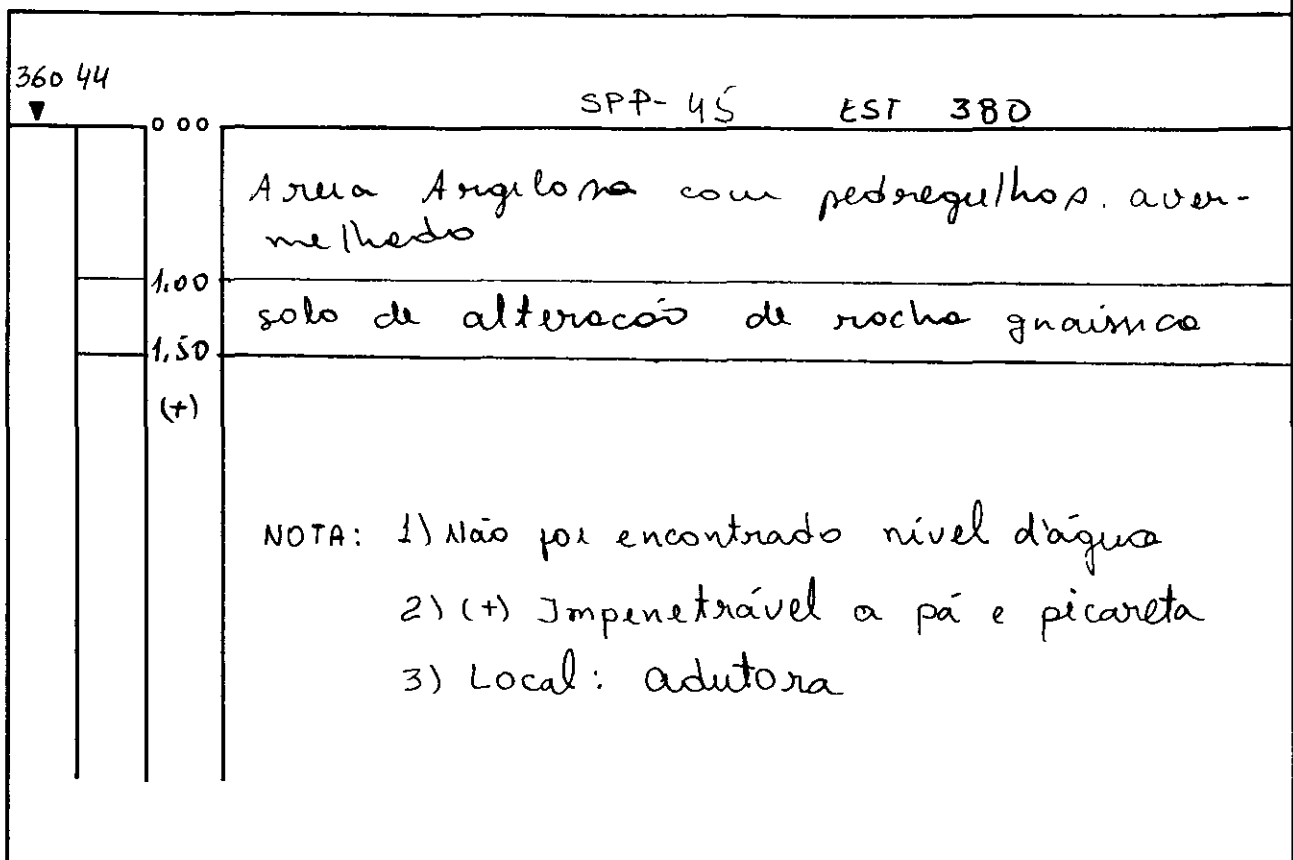 360 44
SPP-45 EST 380
0 00
Areia Argilosa com pedregulhos. aver-
melhado
1,00
solo de alteração de rocha gnaissica
1,50
(+)
NOTA: 1) Não foi encontrado nível d'água
2) (+) Impenetrável a pá e picareta
3) Local: adutora